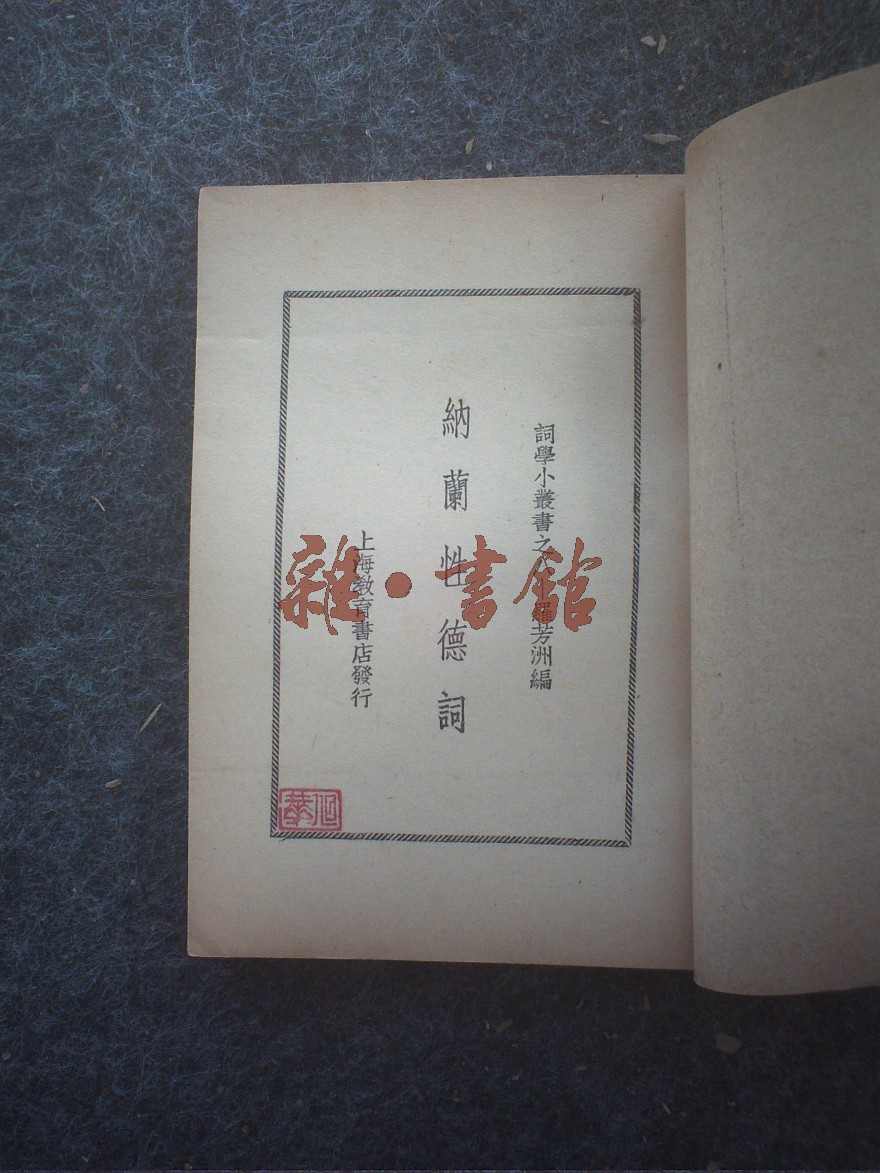 詞學小叢書之八 羅芳洲編
納蘭性德詞
上海教育書店發行
雜·書館